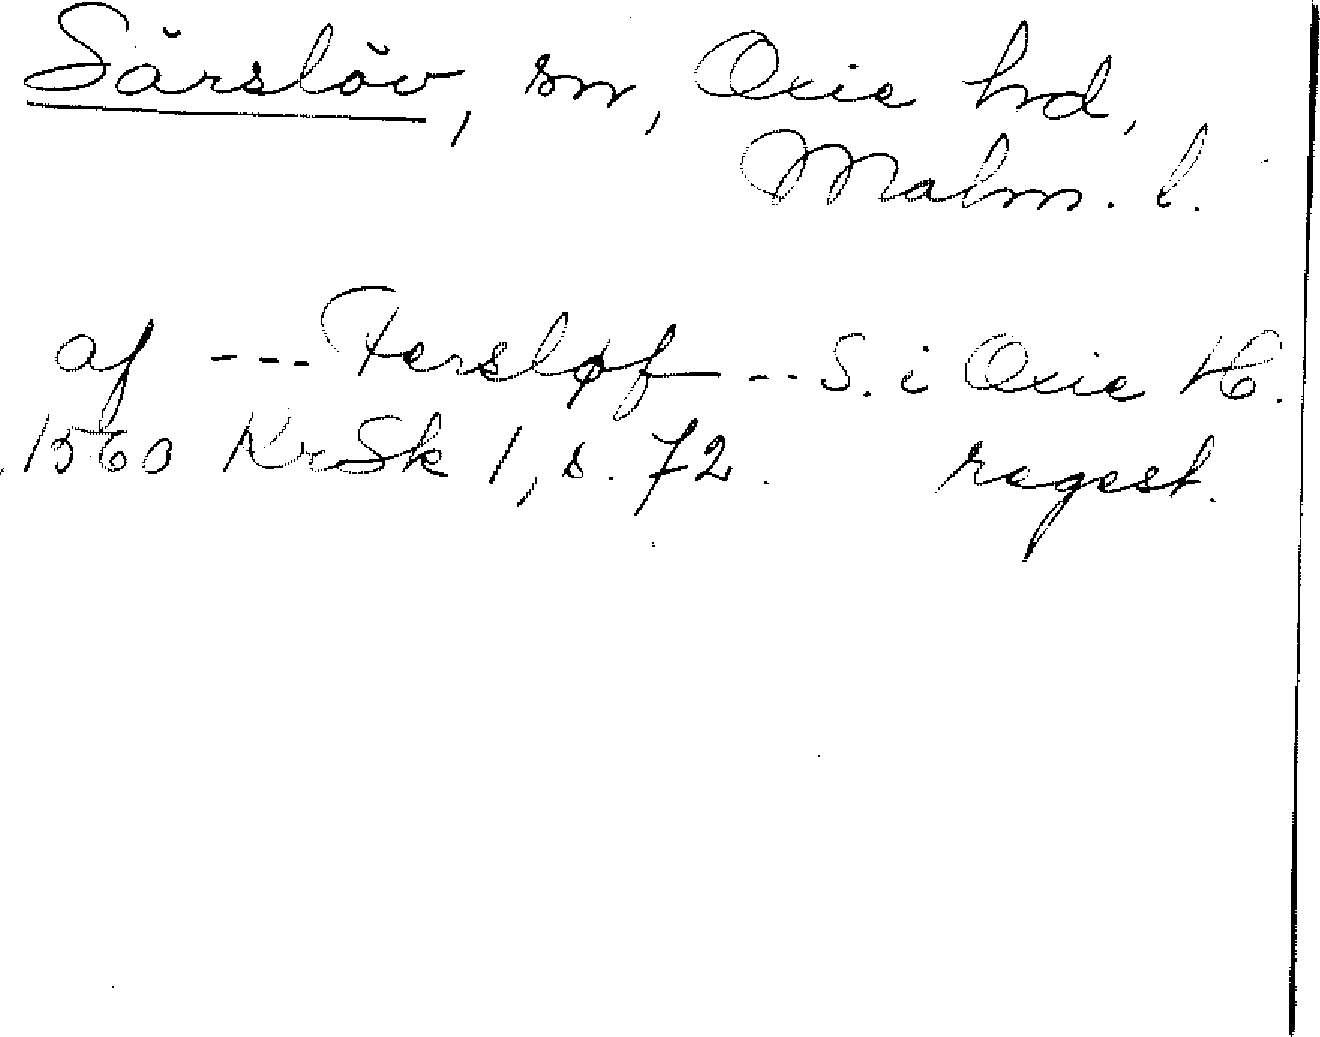 Särslöv, sn, Oxie hd,
Malm. l.
af --- Fersløf --- S. i Oxie H.
1560 KrSk 1, s. 72. regest.